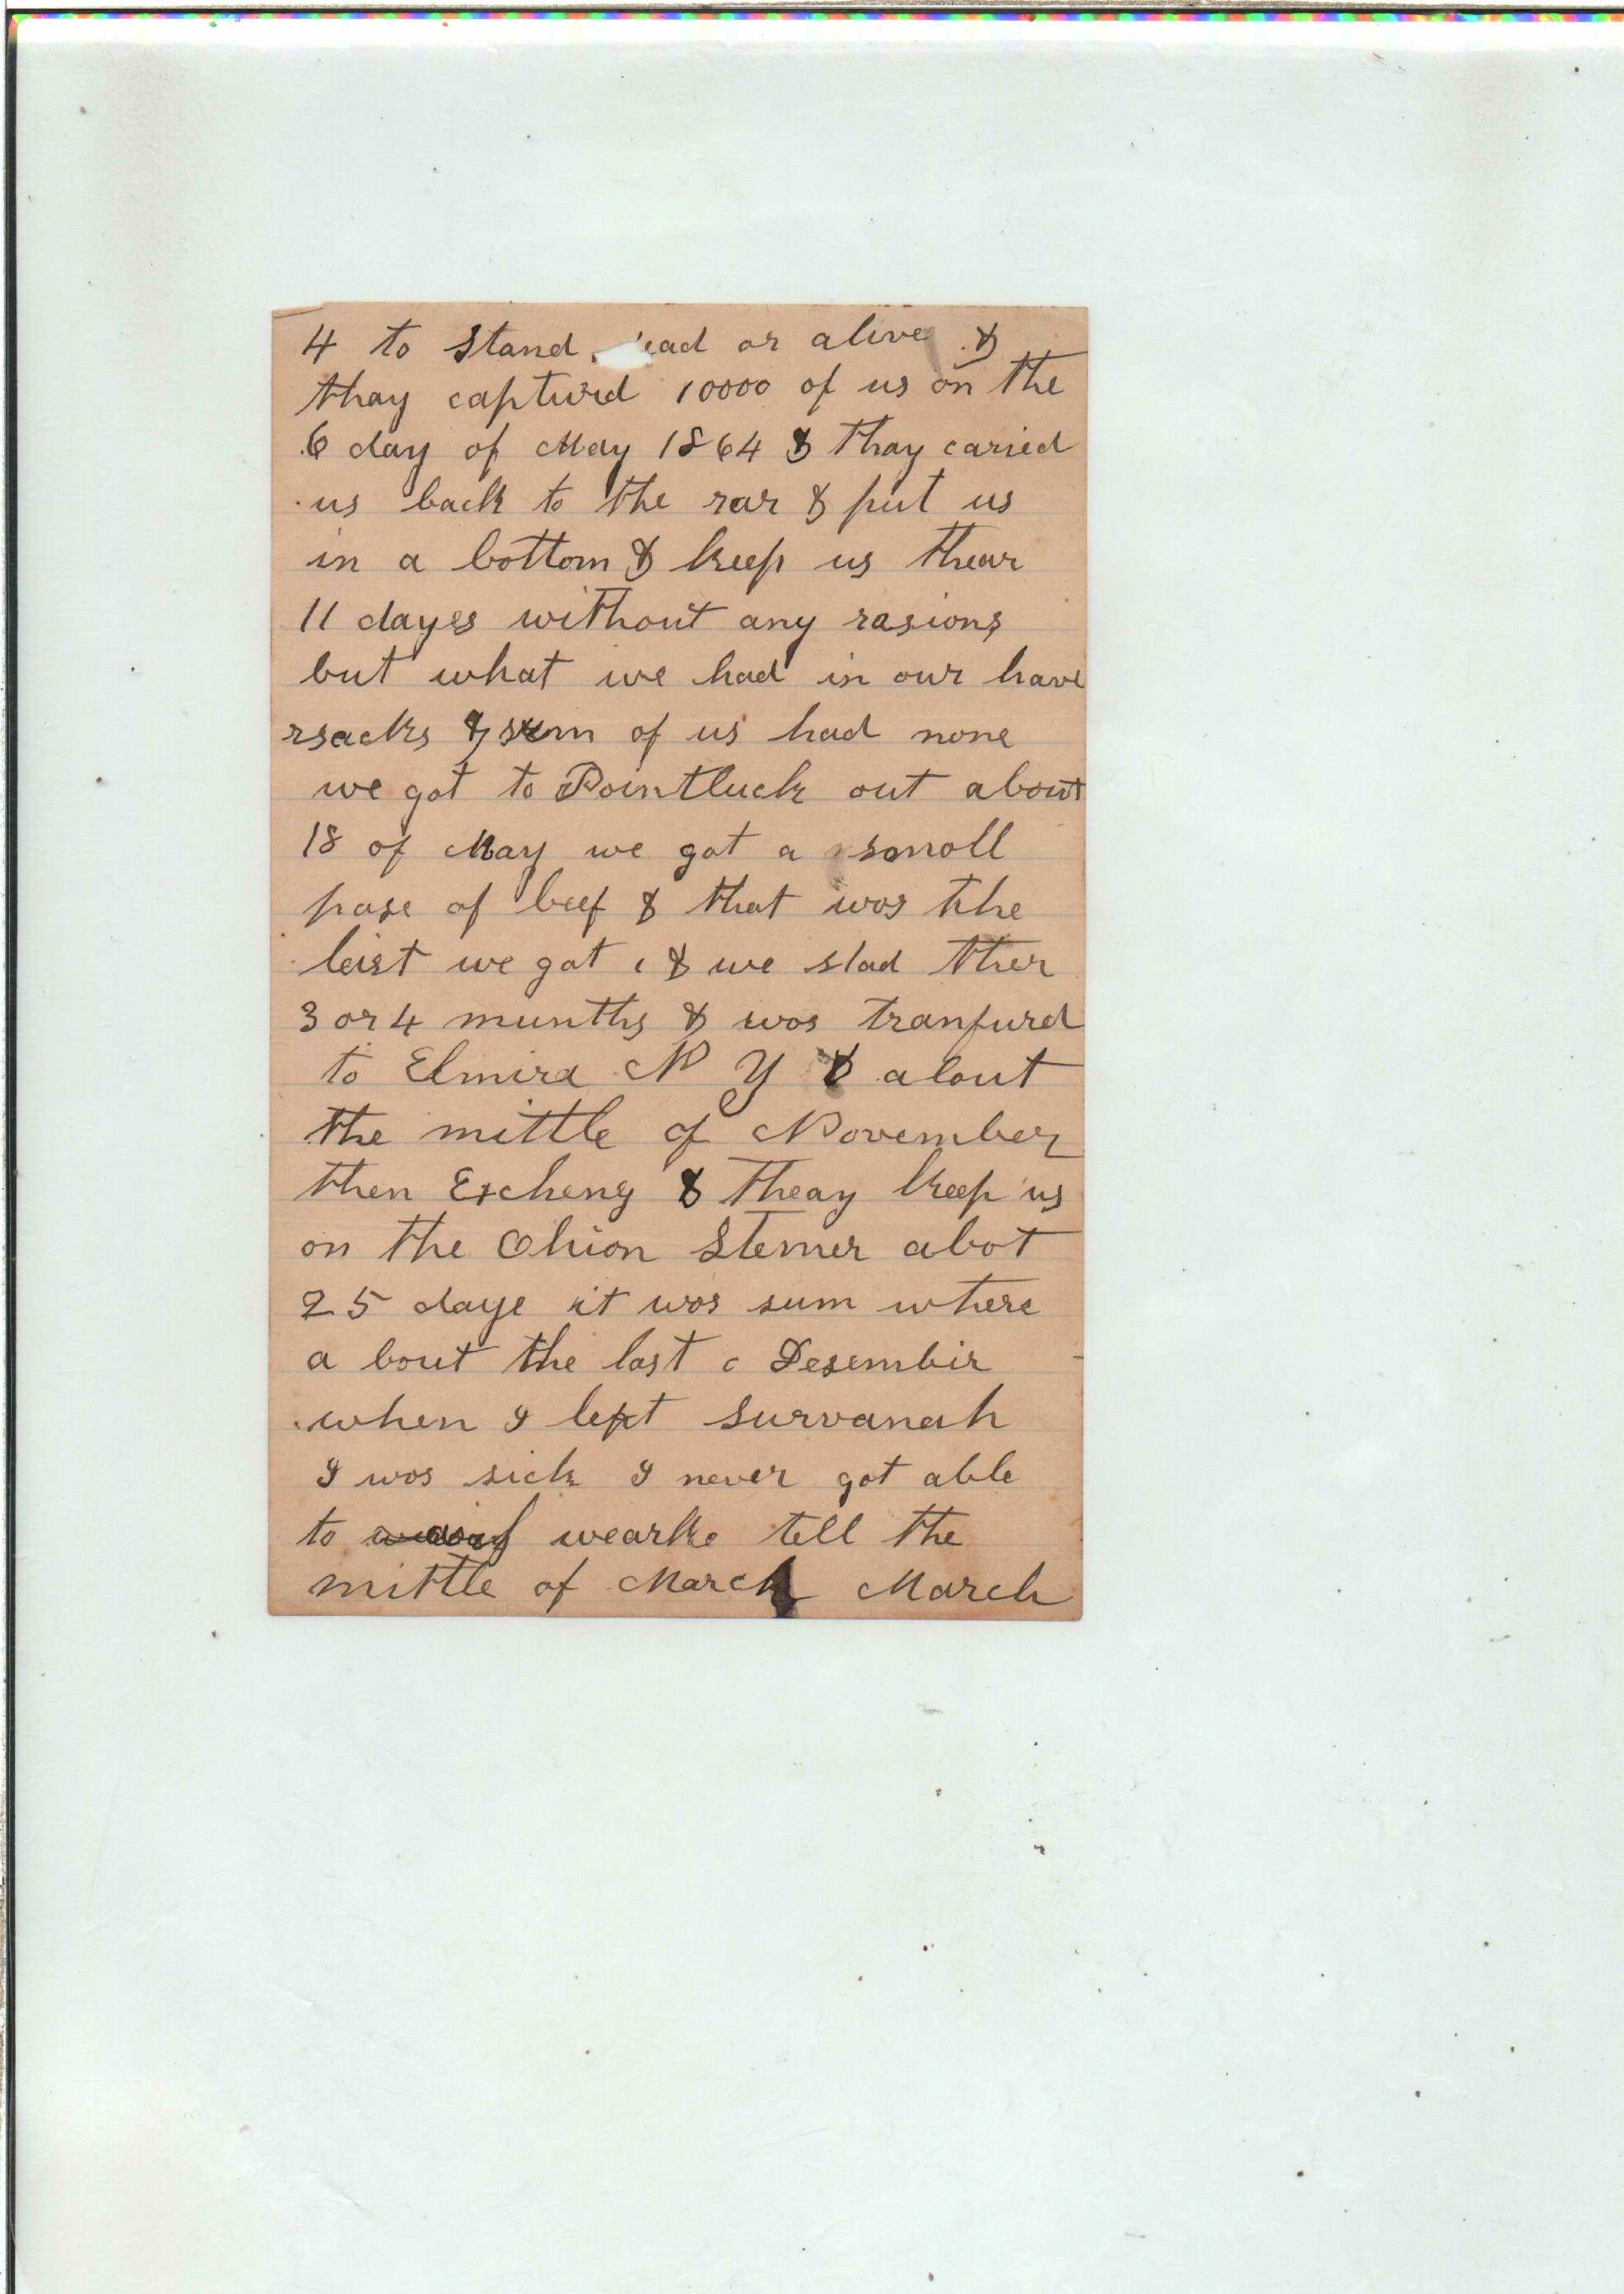 4 to stand ead or alive &
thay capturd 10000 of us on the
6 day of May 1864 & thay caried
us back to the rar & put us
in a bottom & keep us thear
11 dayes without any rasions
but what we had in our have
rsacks & sum of us had none
we got to Pointluck out about
18 of May we got a smoll
pase of beef & that wos the
last we got & we stad ther
3 or 4 munths & wos tranfurd
to Elmira N Y & about
the mittle of November
then Excheng & theay keep us
on the Ohion Stemer abot
25 daye it wos sum where
a bout the last c Desembir
when I left Survanah
I wos sick I never got able
to wearke tell the
mittle of March March